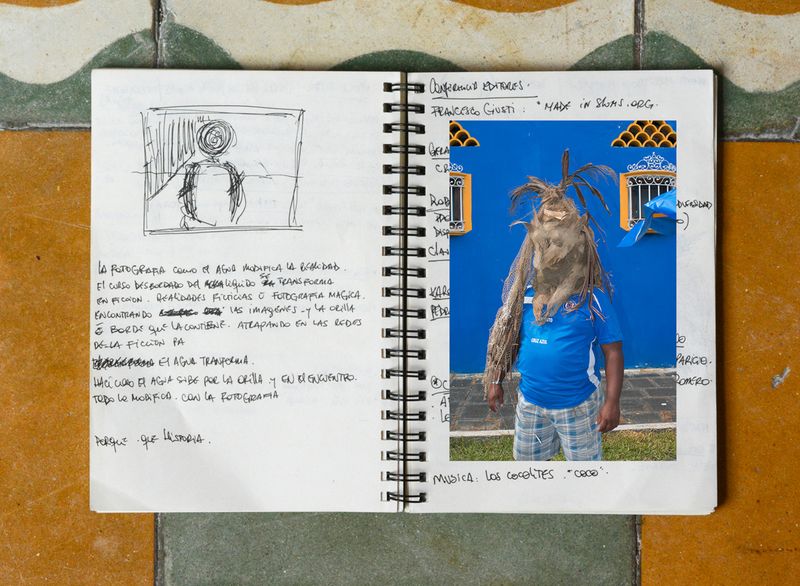 LA FOTOGRAFIA COMO EL AGUA MODIFICA LA REALIDAD.
EL CURSO DESBORDADO DEL LIQUIDO SE TRANSFORMA
EN FICCION. REALIDADES FICTICIAS O FOTOGRAFIA MAGICA.
ENCONTRANDO LAS IMAGENES Y LA ORILLA
BORDE QUE LA CONTIENE. ATRAPANDO EN LAS REDES
DE LA FICCION PA
EL AGUA TRANFORMA.
EL AGUA SUBE POR LA ORILLA Y EN EL ENCUENTRO.
TODO LO MODIFICA. CON LA FOTOGRAFIA
PORQUE. QUE HISTORIA.
CONFERENCIA EDITORES.
FRANCESCO GIUSTI. "MADE IN SLUMS.ORG.
CRUZ AZUL
MUSICA: LOS COCOLITES. "COCO".